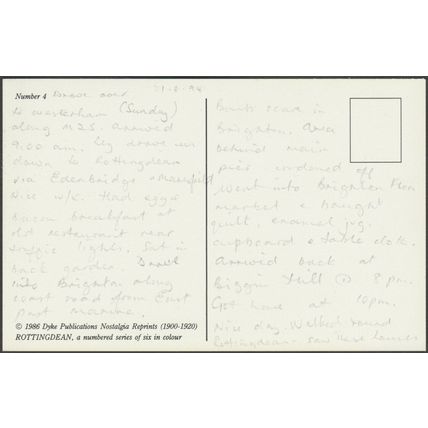 21-8-94
Number 4 Drove over
to Westerham (Sunday)
along M25. Arrived
9.00 am. drove
down to Rottingdean
via Edenbridge & Maresfield
Nice w/e. Had egg &
bacon breakfast at
old restaurant near
traffic lights. Sat in
back garden. Drove
into Brighton along
coast road from East
past marina.
© 1986 Dyke Publications Nostalgia Reprints (1900-1920)
ROTTINGDEAN, a numbered series of six in colour
Bomb scare in
Brighton. Area
behind main
pier cordoned off
Went into Brighton Flea
market & bought
quilt, enamel jug,
cupboard & table cloth.
Arrived back at
Biggin Hill @ 8 pm.
Got home at 10pm.
Nice day. Walked round
Rottingdean. saw